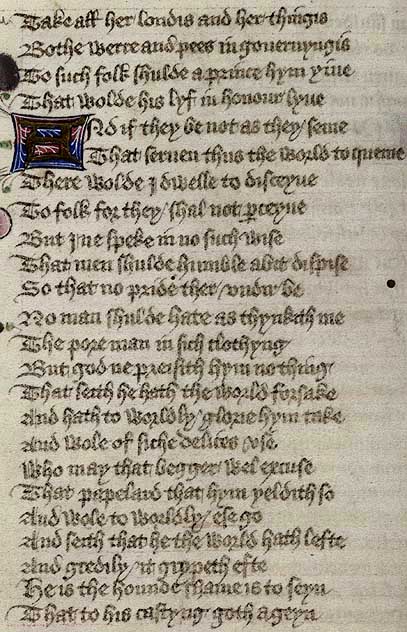 Take all her londis and her thingis
Bothe werre and pees in gouernyngis
To such folk shulde a prince hym yiue
That wolde his lyf in honour lyue
And if they be not as they seme
That seruen thus the world to queme
There wolde I dwelle to disceyue
To folk for they shal not ꝑceyue
But I ne speke in no such wise
That men shulde humble abit dispise
So that no pride ther vndir be
No man shulde hate as thynkith me
The pore man in sich clothyng
But god ne preisith hym no thing
That seith he hath the world forsake
And hath to worldly glorie hym take
And wole of siche delices vse
Who may that begger wel excuse
That papelard that hym yeldith so
And wole to worldly ese go
And seith that he the world hath lefte
And gredily it grypeth efte
He is the hounde shame is to seyn
That to his castyng goth ageyn